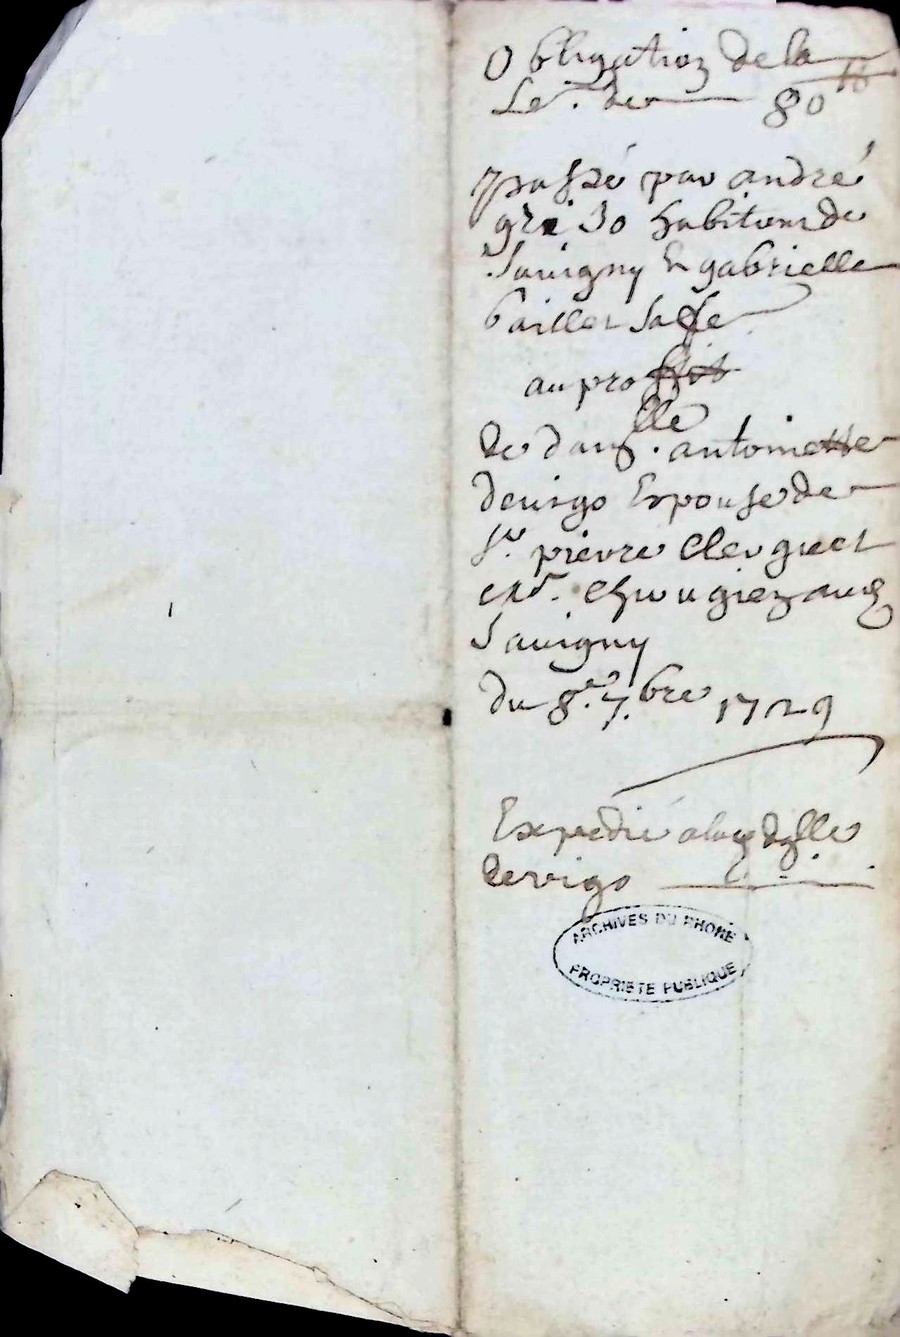 Obligation de la
Se.e de 80 tt
passé par andré
grizo habitant de
Savigny & gabrielle
paillet sa fe
au proffit
de dam.lle antoinette
devigo Espouse de
sr. pierre Clerguet
Me. Chirurgien aud
Savigny
du 8.e 7.bre 1729
Expedié alad dlle
devigo
ARCHIVES DU RHONE
PROPRIETE PUBLIQUE